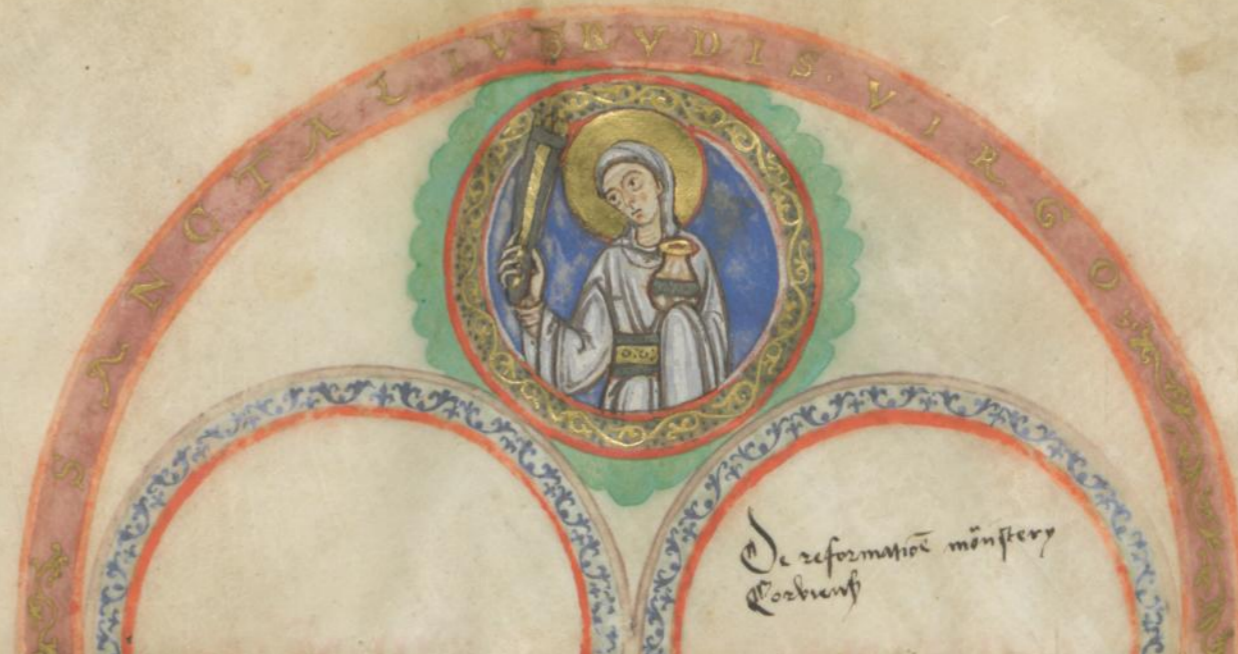 SANCTA LIVTRVDIS. VIRGO
De reformatiōe mōnstery
Corbienſ